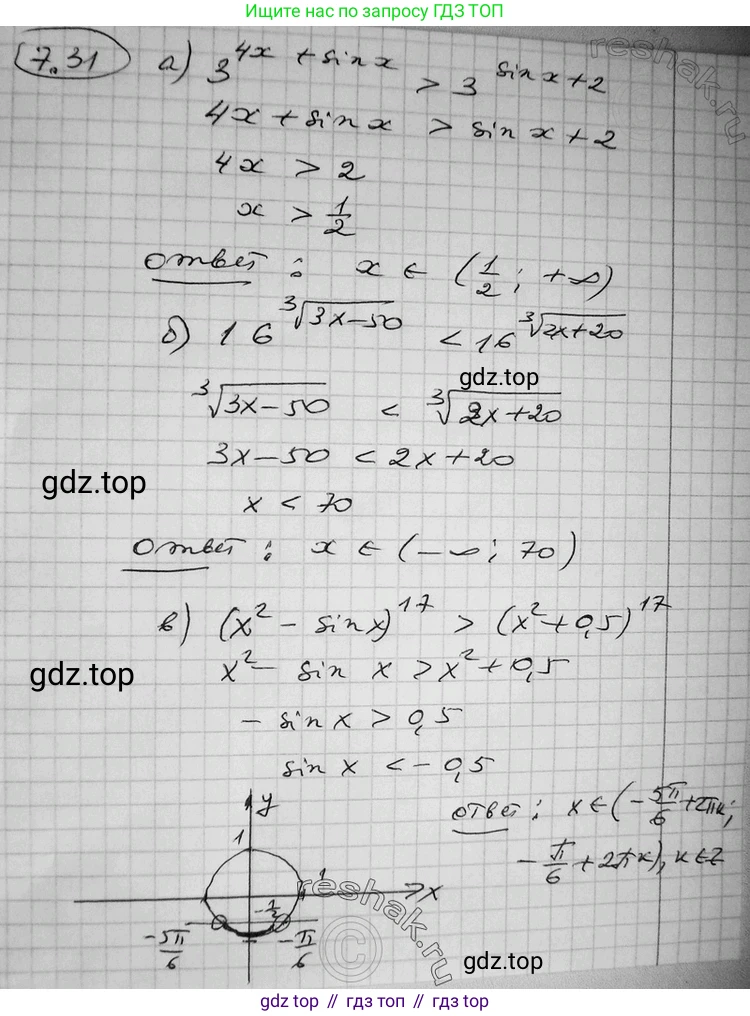 Ищите нас по запросу ГДЗ ТОП
7.31 а) 3^(4x + sin x) > 3^(sin x + 2)
reshak.ru
4x + sin x > sin x + 2
4x > 2
x > 1/2
ответ : x ∈ (1/2 ; +∞)
б) 16^(∛(3x-50)) < 16^(∛(2x+20))
gdz.top
∛(3x-50) < ∛(2x+20)
3x-50 < 2x+20
gdz.top
x < 70
ответ : x ∈ (-∞; 70)
в) (x² - sin x)^17 > (x² + 0,5)^17
x² - sin x > x² + 0,5
gdz.top
- sin x > 0,5
sin x < - 0,5
ответ : x ∈ (-5π/6 + 2πk;
-π/6 + 2πk), k ∈ Z
y
1
1
x
reshak.ru
©
-1/2
-5π/6
-π/6
gdz.top
gdz top // гдз топ // гдз top